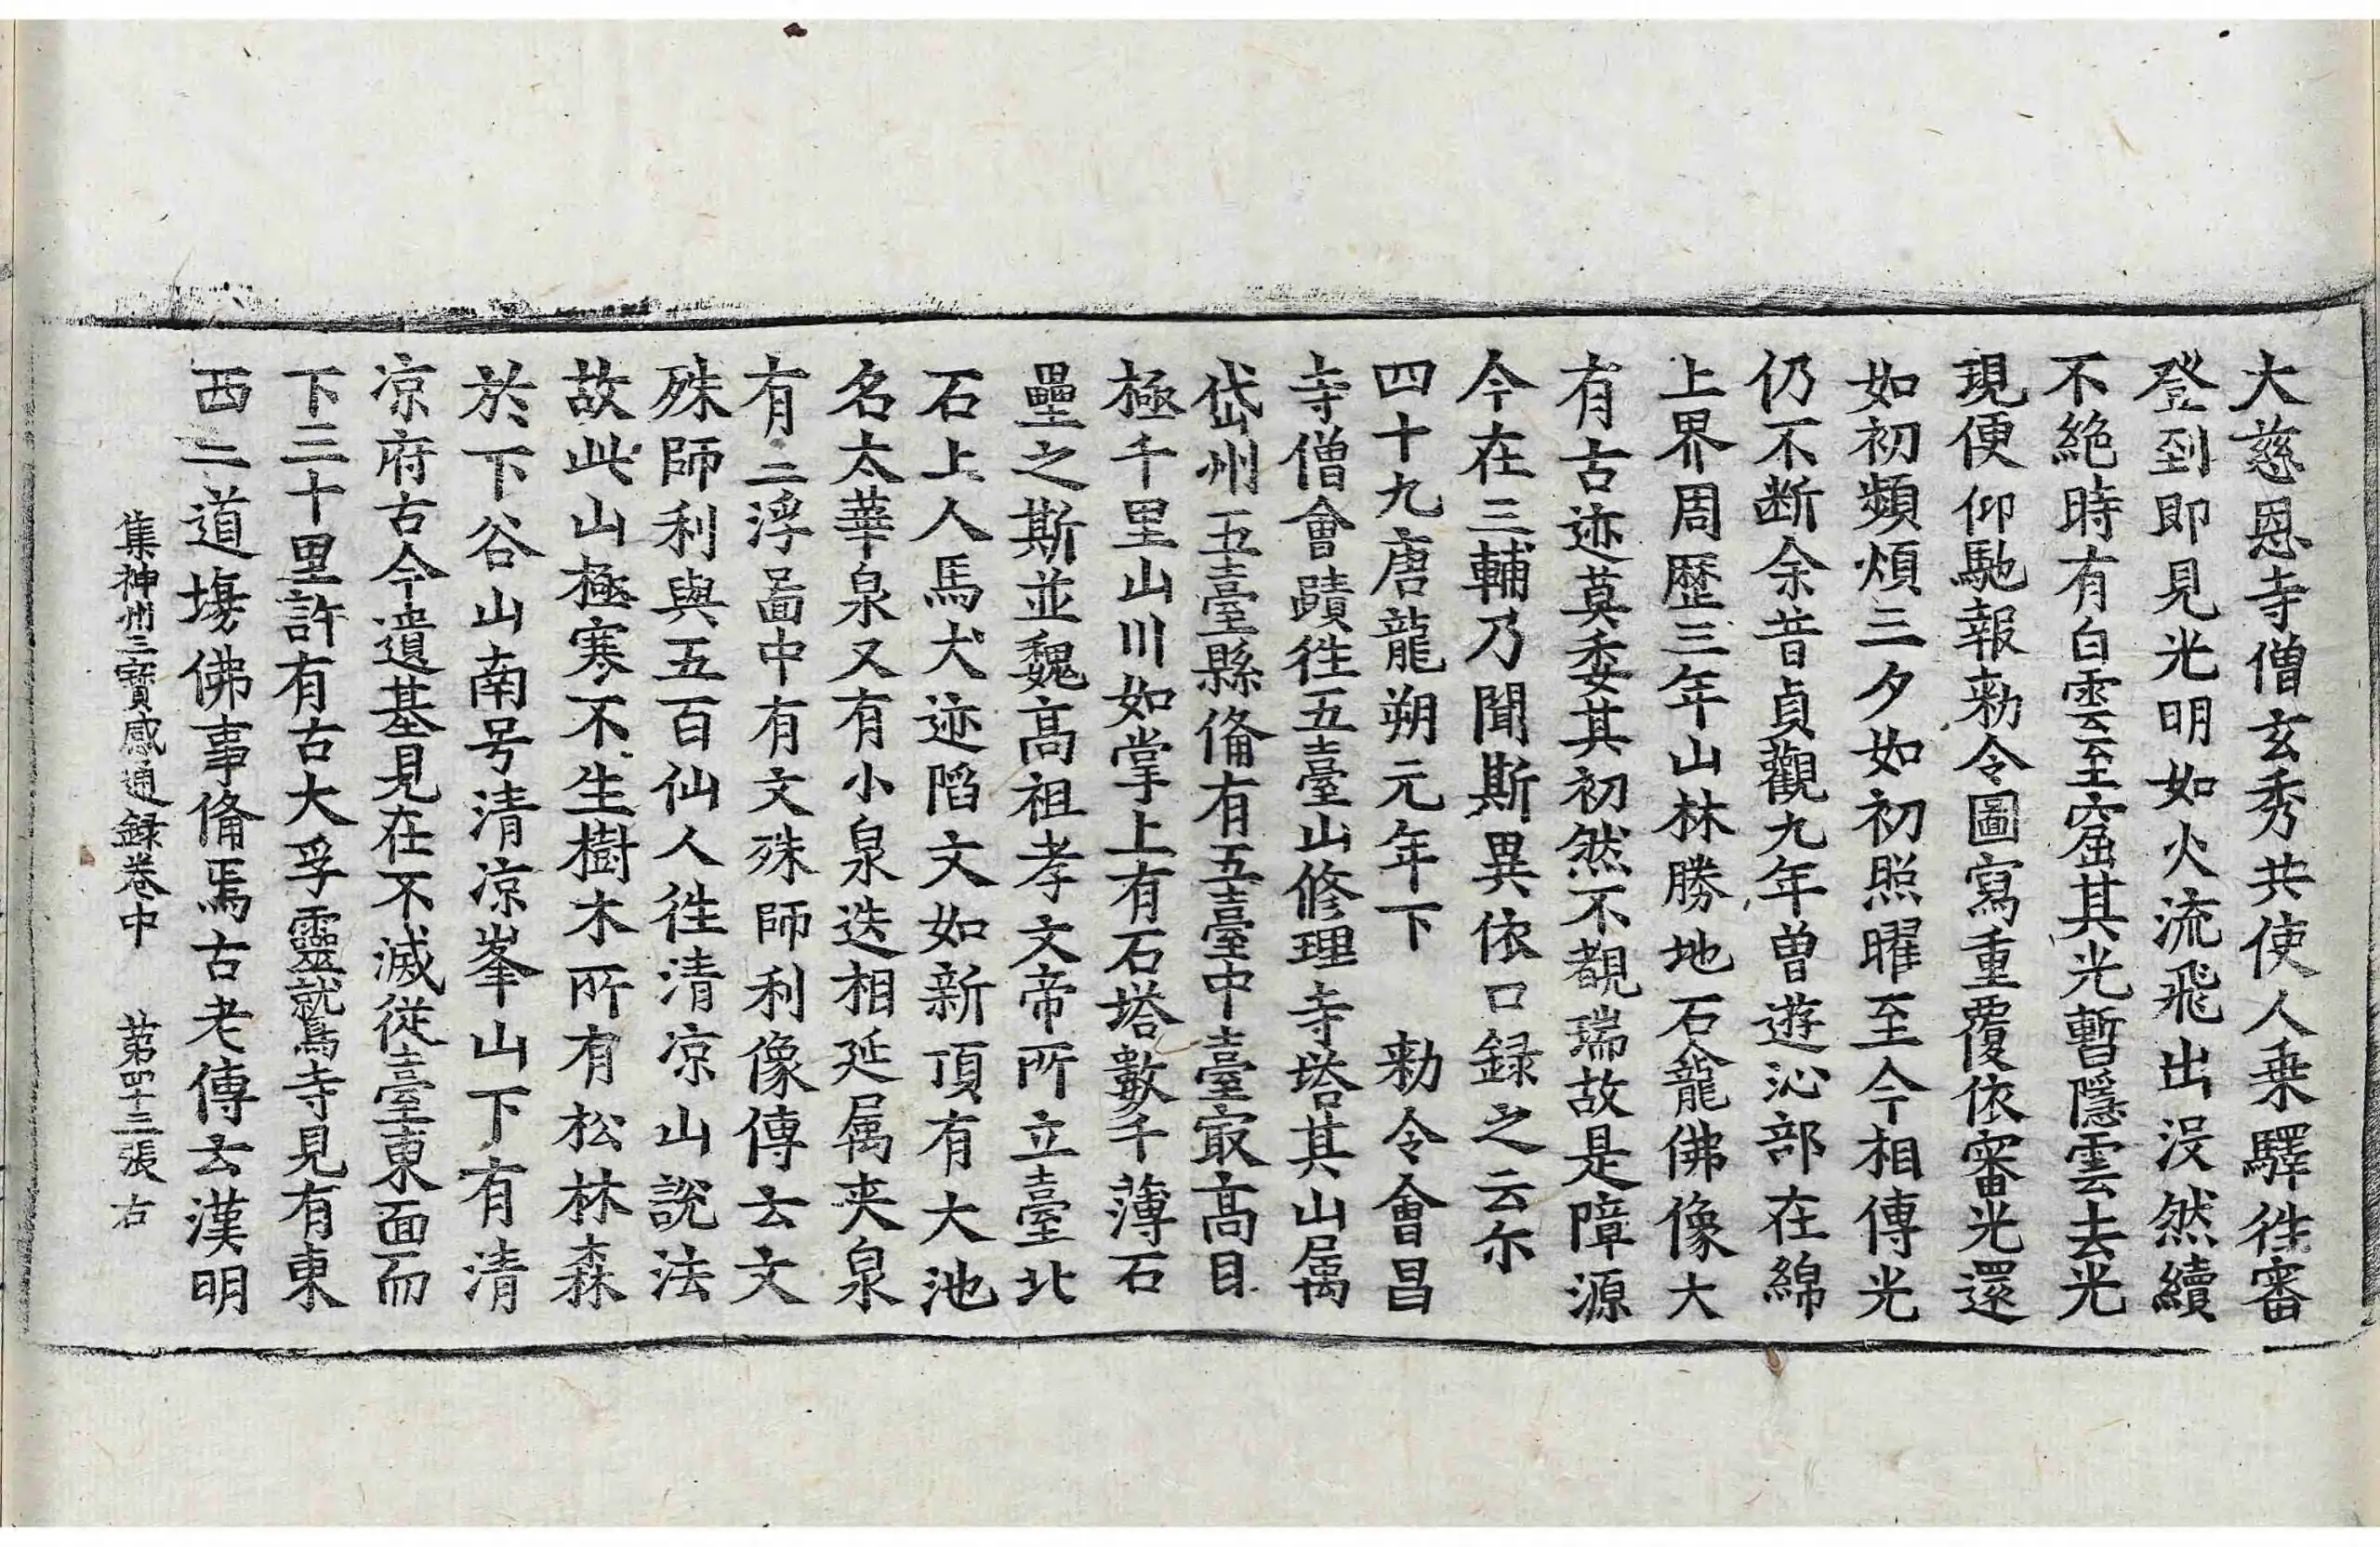 大慈恩寺僧玄秀共使人乗驛徃審
登到即見光明如火流飛出没然續
不絶時有白雲至窟其光暫隱雲去光
現便仰馳報勑令圖寫重覆依審光還
如初頻煩三夕如初照曜至今相傳光
仍不断余昔貞觀九年曽遊沁部在綿
上界周歷三年山林勝地石龕佛像大
有古迹莫委其初然不覩瑞故是障源
今在三輔乃聞斯異依口録之云尓
四十九唐龍朔元年下　勑令會昌
寺僧會賾徃五臺山修理寺塔其山属
岱州五臺縣俻有五臺中臺㝡髙目
極千里山川如掌上有石塔數千薄石
壘之斯並魏髙祖孝文帝所立臺北
石上人馬犬迹陷文如新頂有大池
名太華泉又有小泉迭相延属夹泉
有二浮啚中有文殊師利像傳云文
殊師利與五百仙人徃清凉山說法
故此山極寒不生樹木所有松林森
於下谷山南号清凉峯山下有清
凉府古今遺基見在不滅從臺東面而
下三十里許有古大孚靈鷲寺見有東
西二道塲佛事俻焉古老傳云漢明
集神州三寳感通録卷中　苐四十三張　右